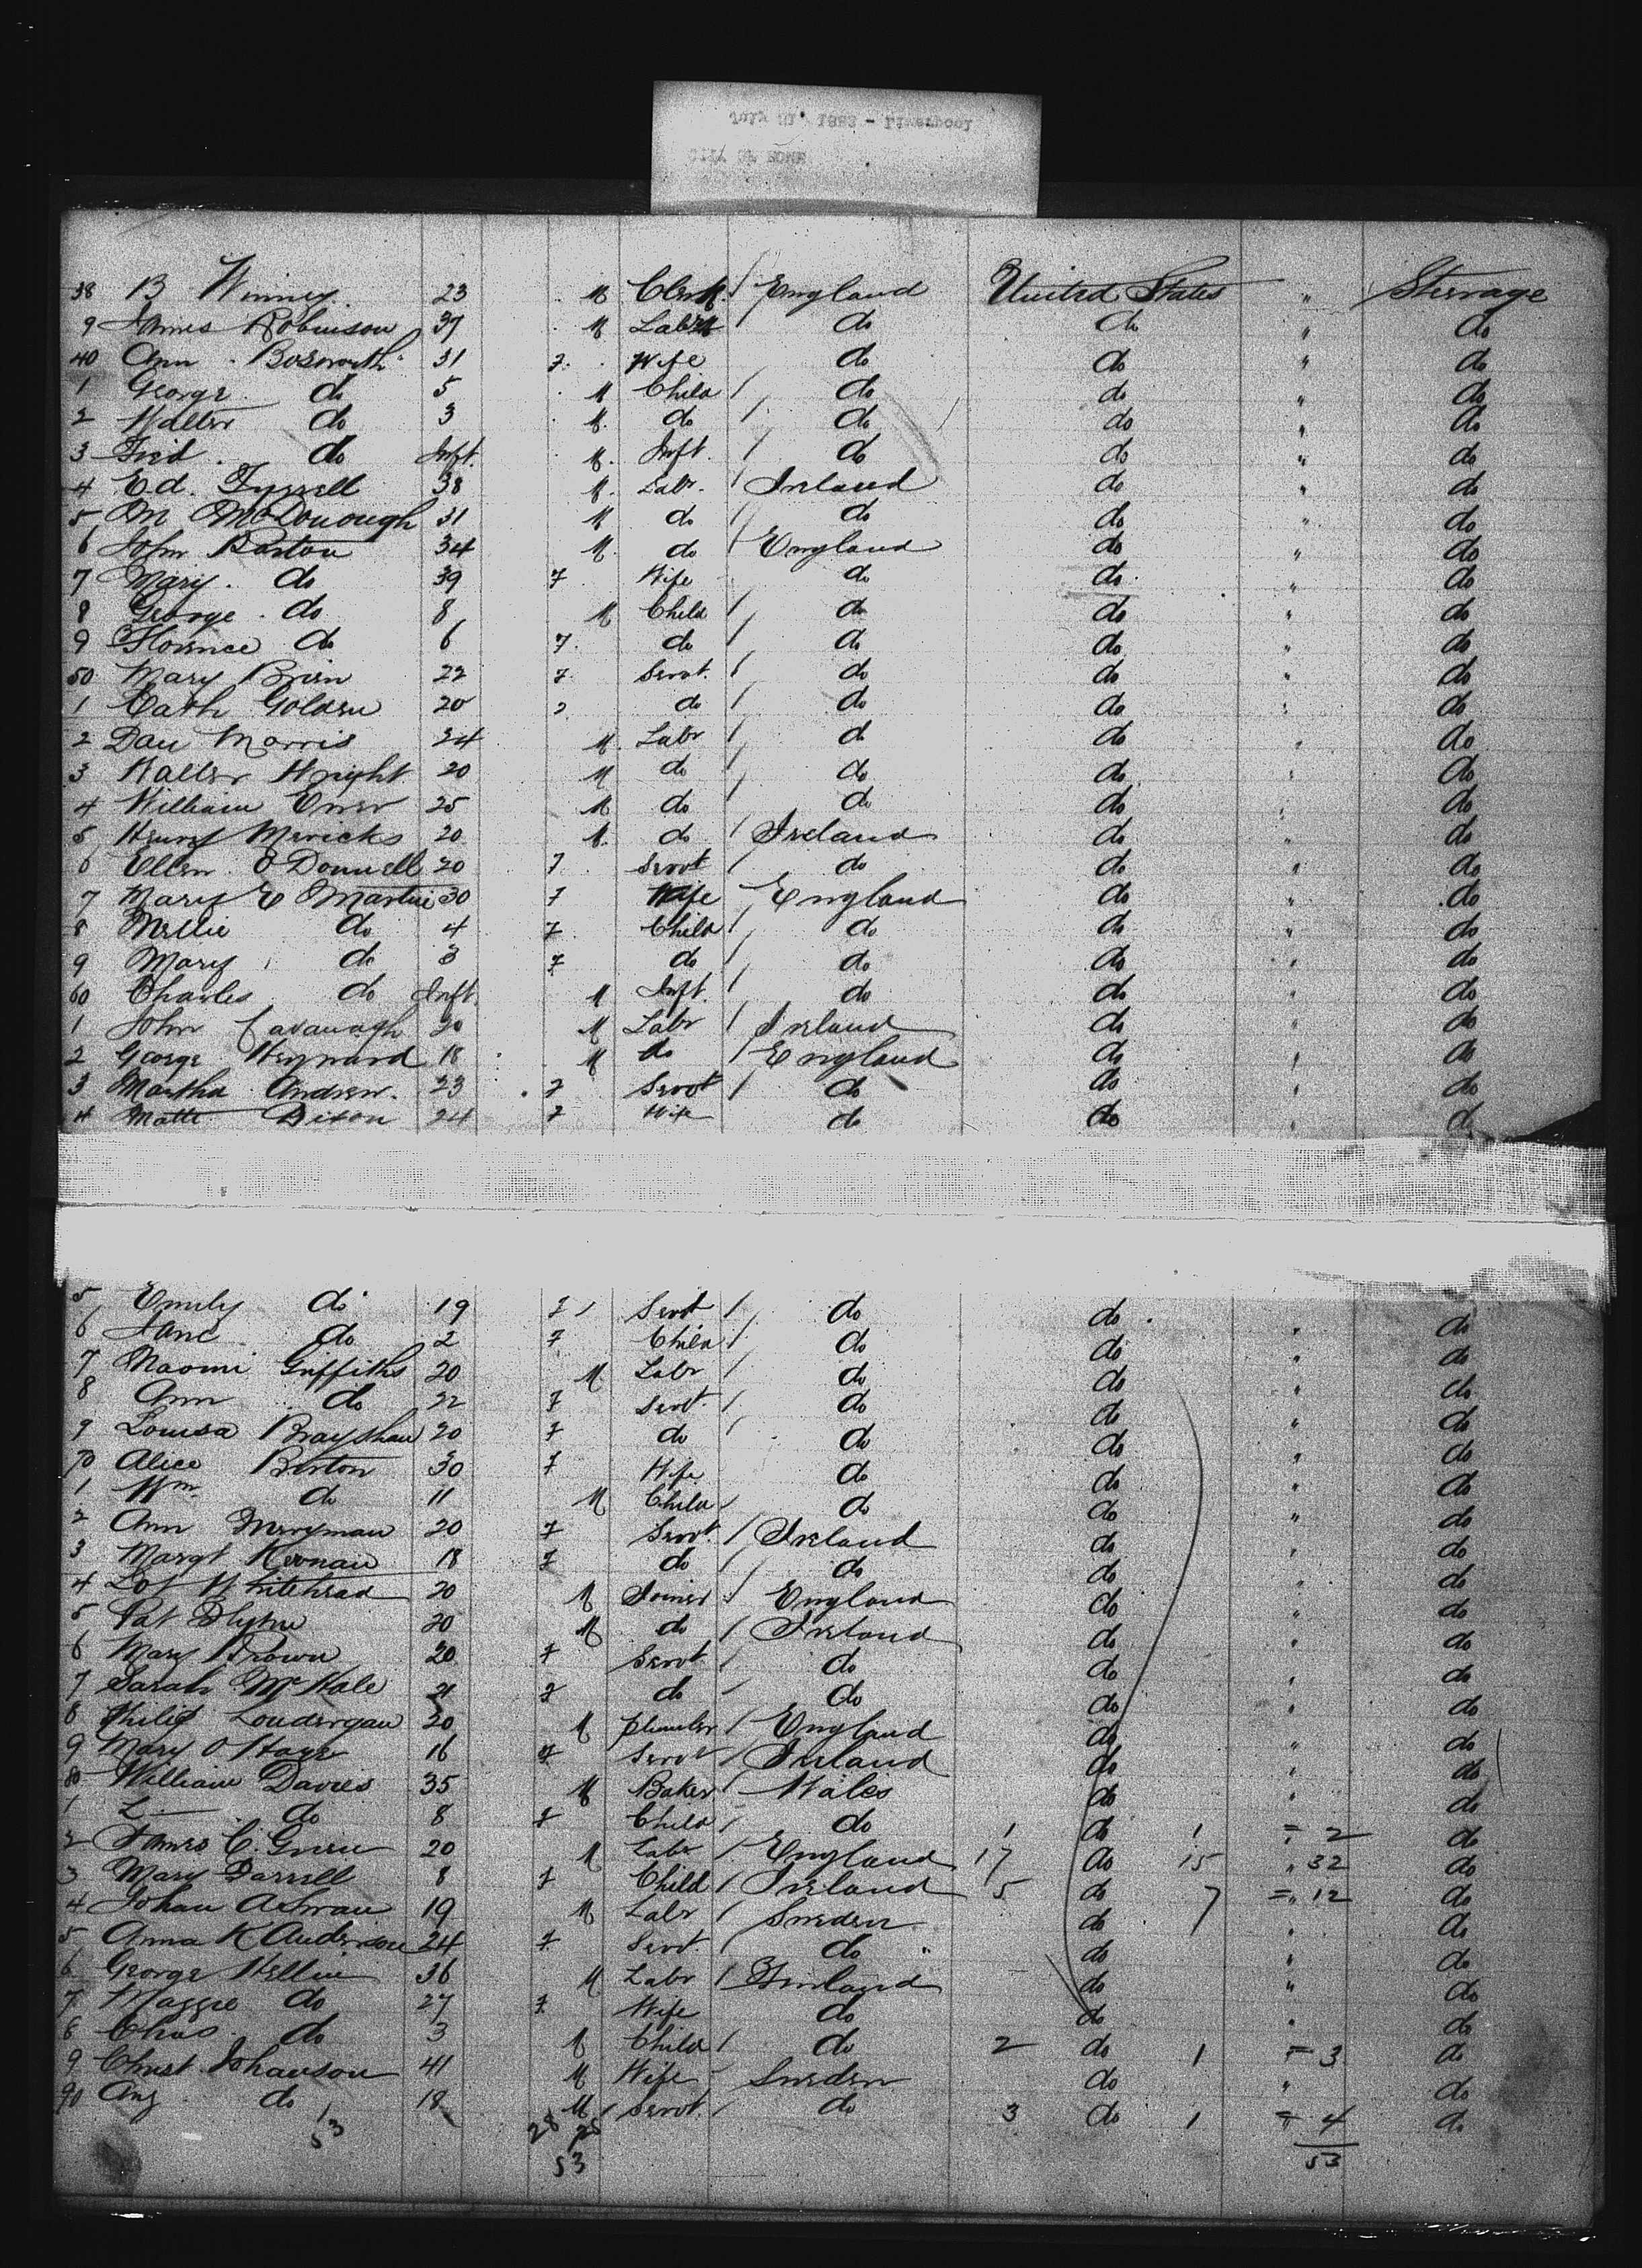 July 21, 1883 - Liverpool
CITY OF ROME
38 B Winney. 23 M Clerk / England United States " Steerage
9 James Robinson 37 M Labr / do do " do
40 Ann Bosworth 31 F. Wife do do " do
1 George do 5 M Child / do do " do
2 Walter do 3 M. do / do do " do
3 Fred. do Inft. M. Inft. / do do " do
4 Ed. Tyrrell 38 M. Labr. / Ireland do " do
5 M McDonough 31 M do / do do " do
6 John Barton 34 M. do / England do " do
7 Mary. do 39 F. Wife do do. " do
8 George. do 8 M Child / do do " do
9 Florence do 6 F. do / do do " do
50 Mary Brien 22 F. Servt. / do do " do
1 Cath Golden 20 F do / do do " do
2 Dan Morris 24 M. Labr / do do " do
3 Walter Wright 20 M do / do do " do
4 William 25 M do / do do " do
5 Henry Mericks 20 M. do / Ireland do " do
6 Ellen O'Donnell 20 F. Servt / do do " do
7 Mary E Martin 30 F Wife England do " do
8 Nellie do 4 F. Child / do do " do
9 Mary do 3 F do / do do " do
60 Charles do Inft. M Inft. / do do " do
1 John Cavanagh 20 M Labr / Ireland do " do
2 George 18 M do / England do " do
3 Martha Andrew. 23 F Servt / do do " do
4 Matte Dixon 24 F Wife do do " do
5 Emily do 19 F Servt / do do. " do
6 Jane do 2 F Child / do do " do
7 Naomi Griffiths 20 M Labr / do do " do
8 Ann do 22 F Servt. / do do " do
9 Louisa Brayshaw 20 F do / do do " do
70 Alice Burton 30 F Wife do do " do
1 Wm. do 11 M Child / do do " do
2 Ann Merryman 20 F Servt. / Ireland do " do
3 Margt Kernan 18 F do / do do " do
4 Lot Whitehead 20 M Joiner / England do " do
5 Pat 20 M do / Ireland do " do
6 Mary Brown 20 F Servt / do do " do
7 Sarah McHale 21 F do / do do " do
8 Philip Londergan 20 M Plumber / England do " do
9 Mary O'Hare 16 F Servt / Ireland do " do
80 William Davies 35 M Baker / Wales do " do
1 L— do 8 F Child / do 1 do 1 = 2 do
2 James C. 20 M Labr / England 17 do 15 " 32 do
3 Mary Farrell 8 F Child / Ireland 5 do 7 = 12 do
4 Johan 19 M Labr / Sweden do " do
5 Anna K Anderson 24 F. Servt. / do do " do
6 George Wellin 36 M Labr / Finland do " do
7 Maggie do 27 F. Wife do do " do
8 Chas. do 3 M Child / do 2 do 1 = 3 do
9 Christ Johanson 41 M Wife Sweden do " do
90 Aug do 18 M Servt. / do 3 do 1 = 4 do
53 28 25 53
53